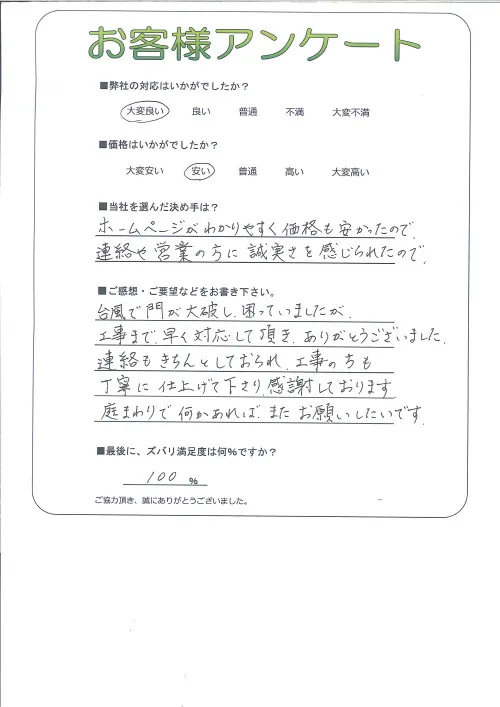 お客様アンケート
■弊社の対応はいかがでしたか？
大変良い 良い 普通 不満 大変不満
■価格はいかがでしたか？
大変安い 安い 普通 高い 大変高い
■当社を選んだ決め手は？
ホームページがわかりやすく価格も安かったので、
連絡や営業の方に誠実さを感じられたので、
■ご感想・ご要望などをお書き下さい。
台風で門が大破し、困っていましたが、
工事まで、早く対応して頂き、ありがとうございました。
連絡もきちんとしておられ、工事の方も
丁寧に仕上げて下さり、感謝しております
庭まわりで何かあれば、またお願いしたいです。
■最後に、ズバリ満足度は何％ですか？
100 ％
ご協力頂き、誠にありがとうございました。